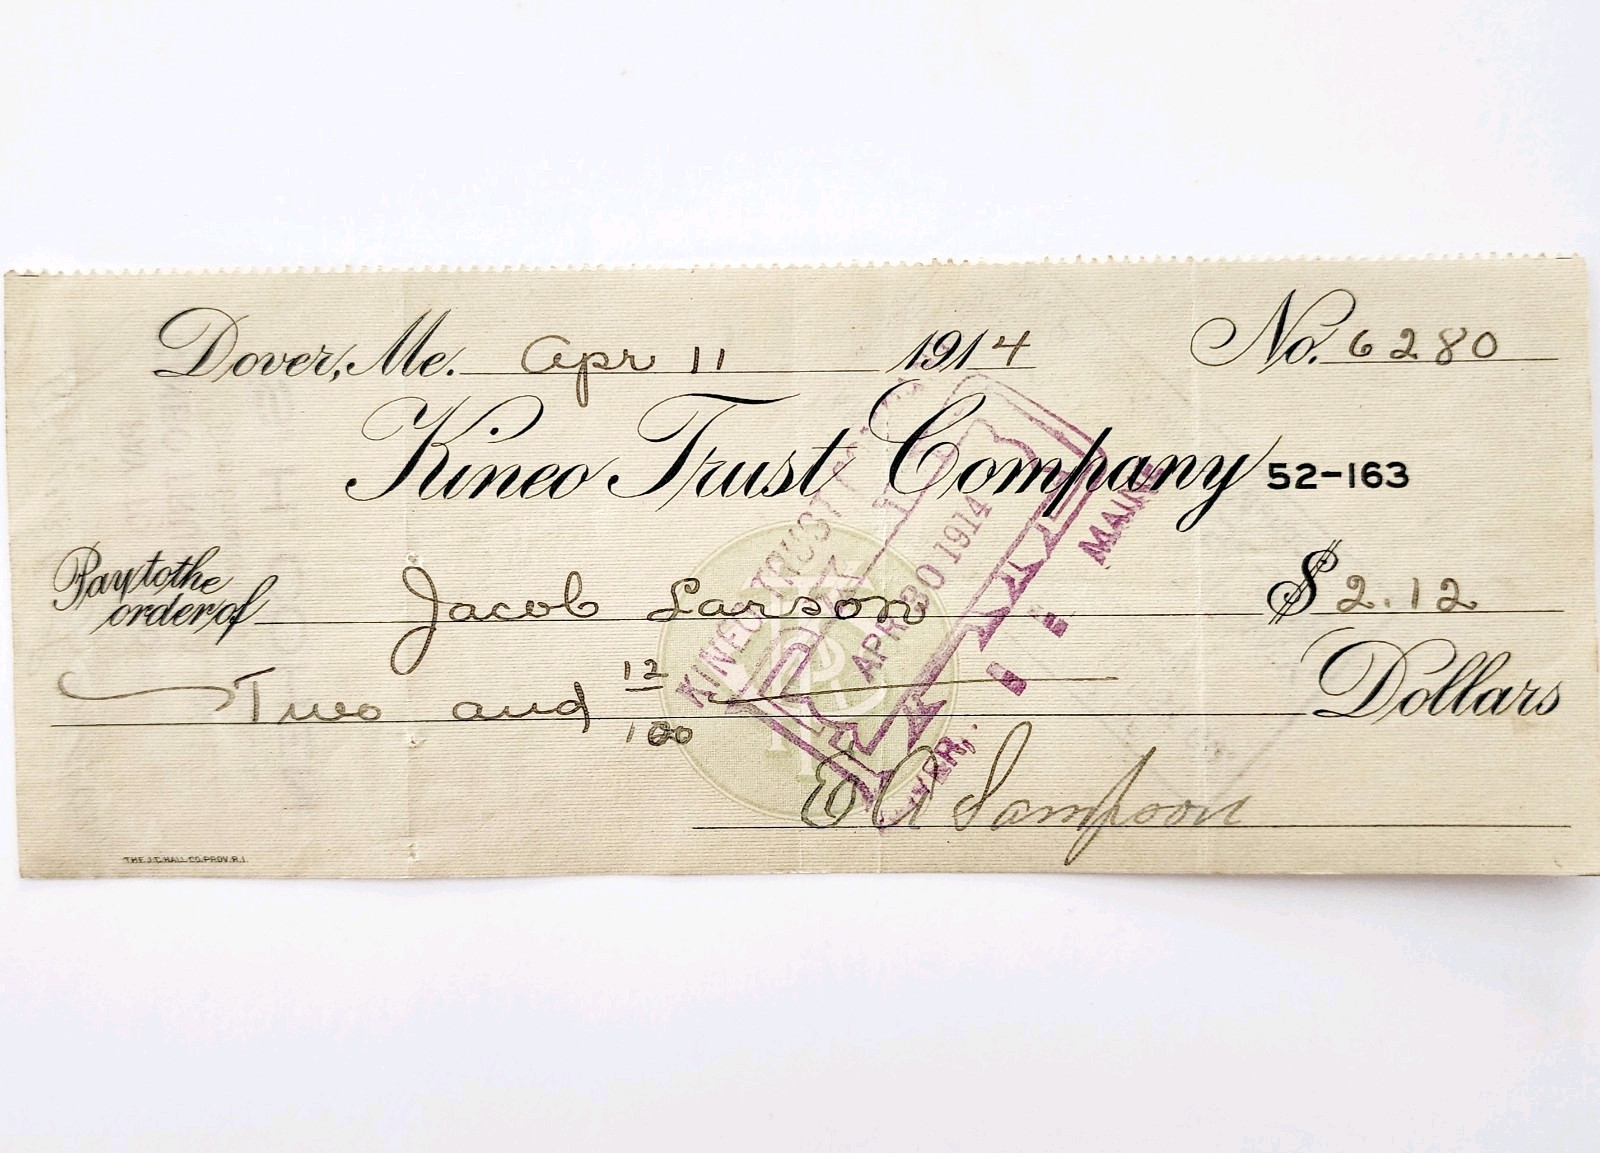 Dover, Me. Apr 11 1914 No. 6280
Kineo Trust Company 52-163
Pay to the order of Jacob Larson $ 2.12
Two and 12/100 Dollars
E A Sampson
THE J.C. HALL CO. PROV. R.I.
KINEO TRUST
APR 30 1914
MAINE